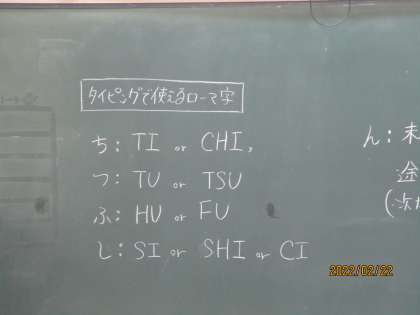 タイピングで使えるローマ字
ち: TI or CHI,
つ: TU or TSU
ふ: HU or FU
し: SI or SHI or CI
ん: 末
金
2022/02/22